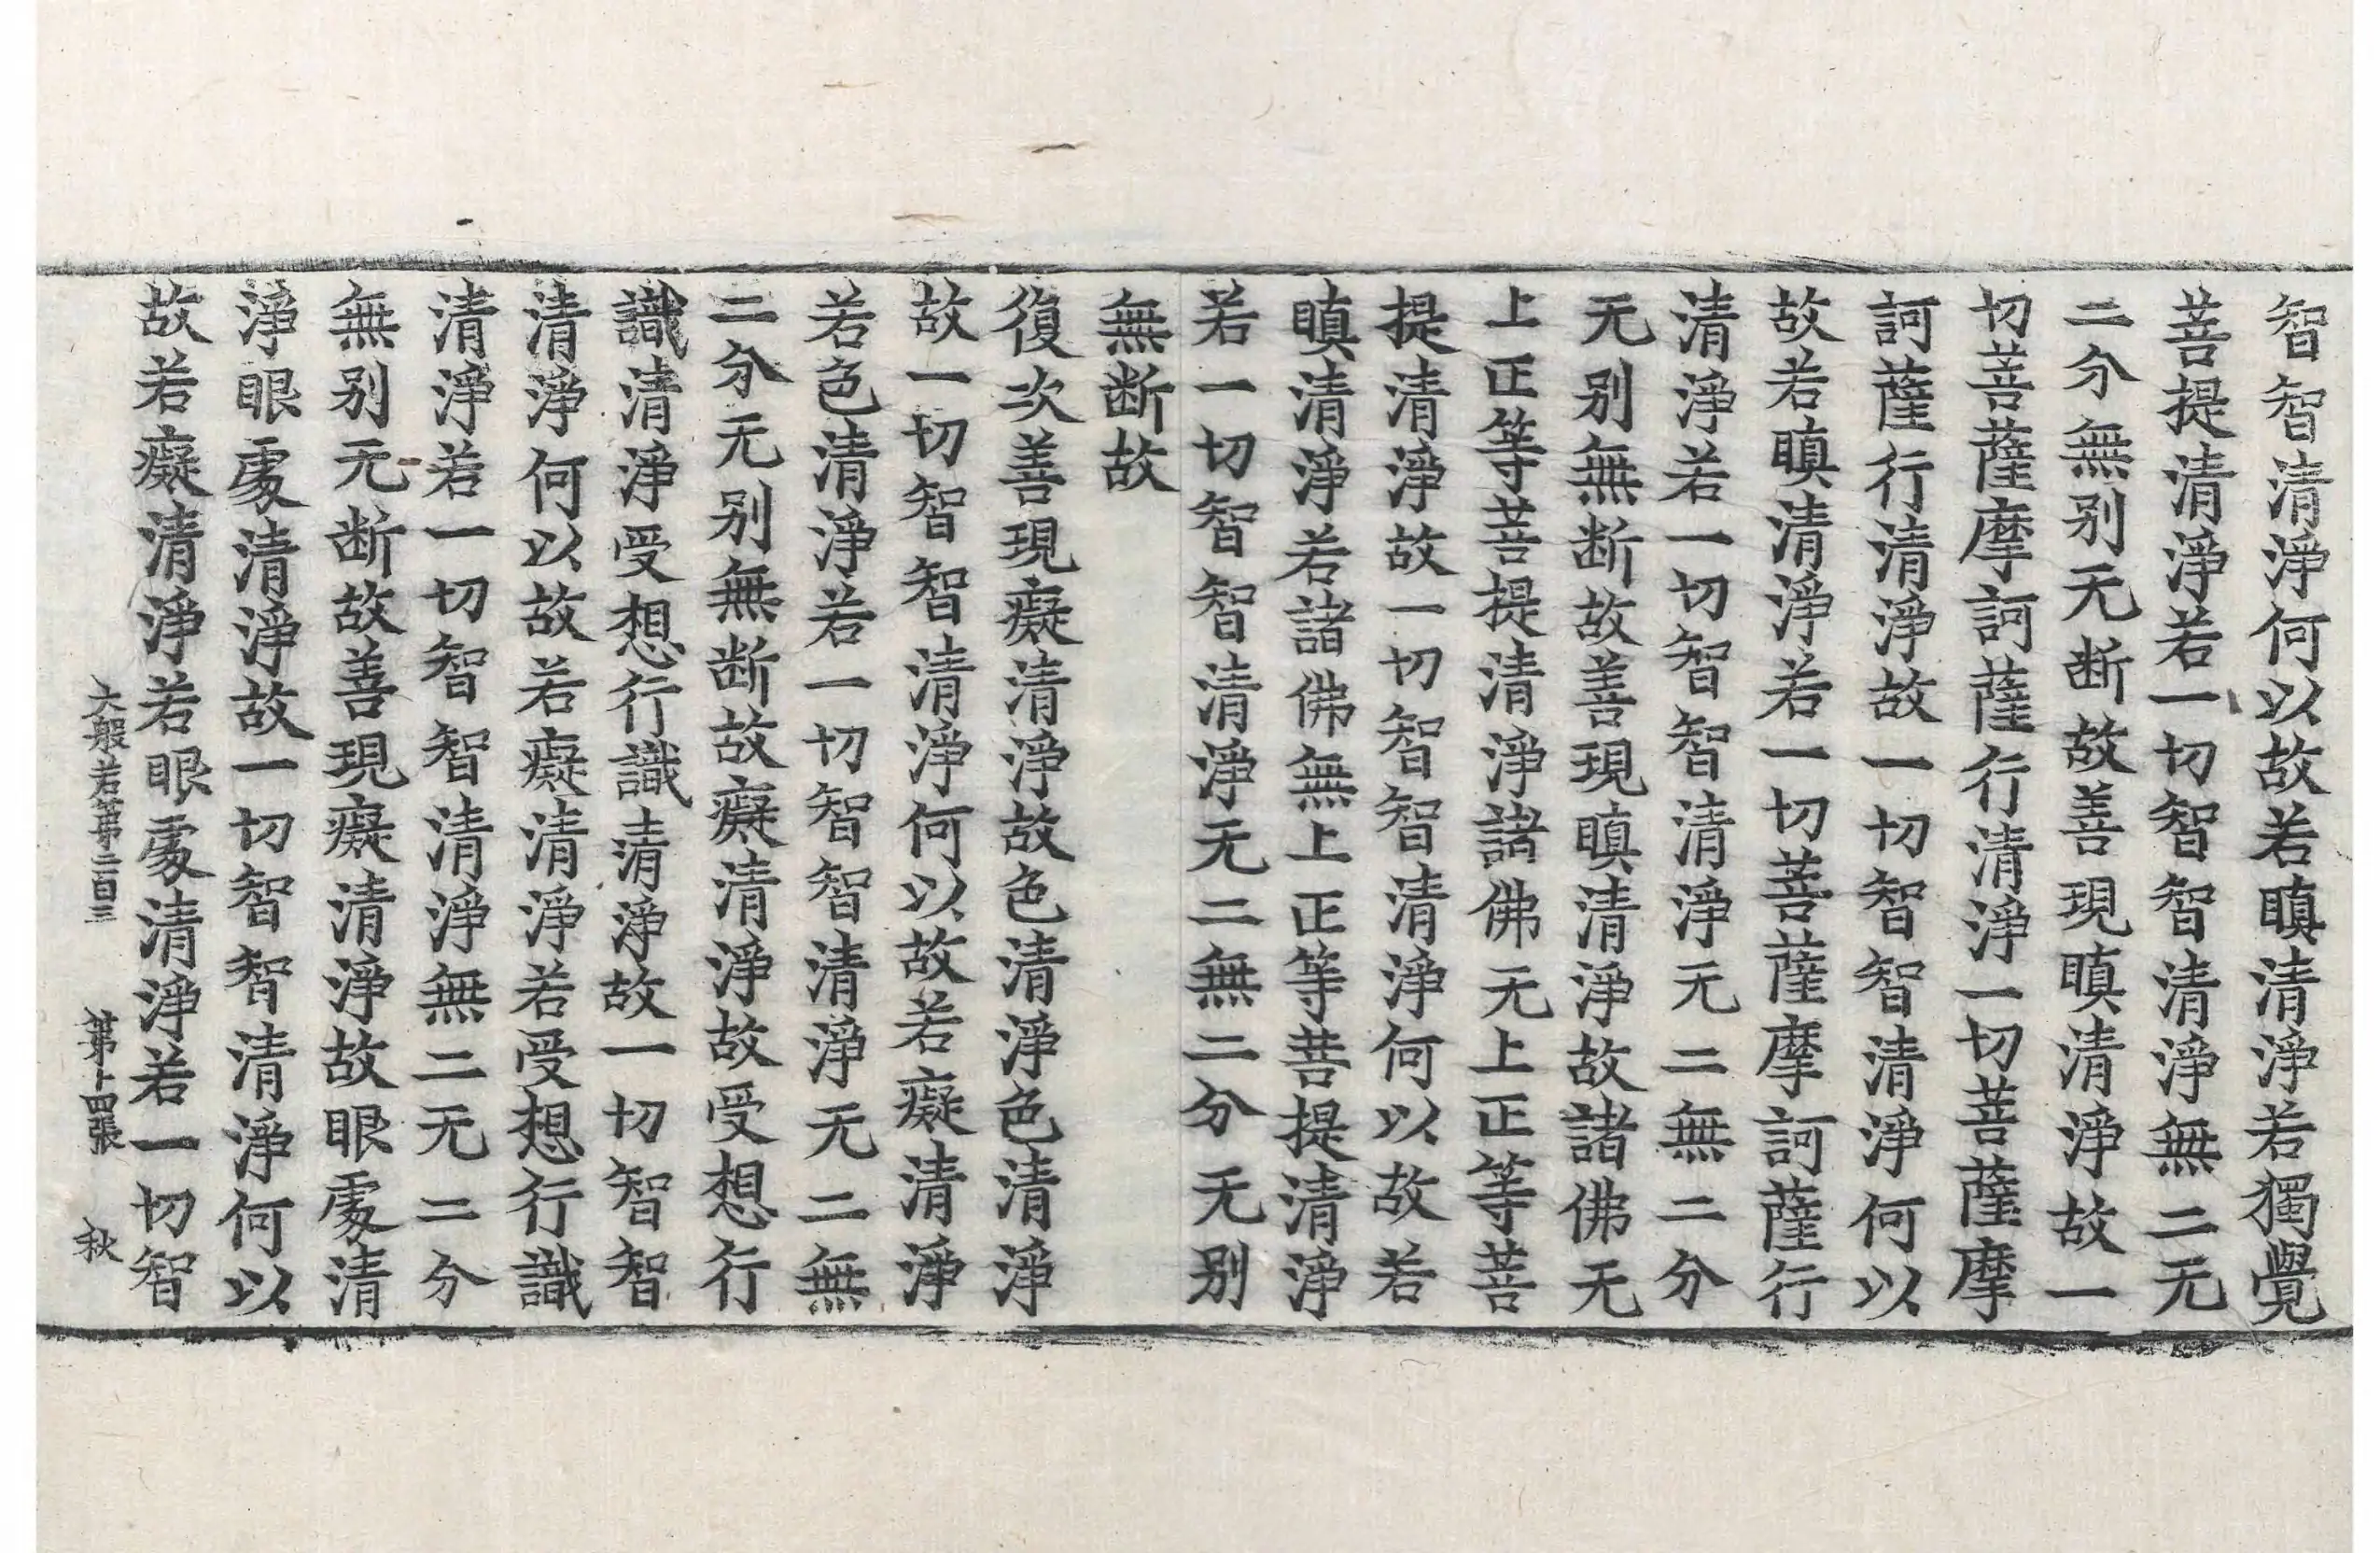 智智清淨何以故若瞋清淨若獨覺
菩提清淨若一切智智清淨無二无
二分無别无断故善現瞋清淨故一
切菩薩摩訶薩行清淨一切菩薩摩
訶薩行清淨故一切智智清淨何以
故若瞋清淨若一切菩薩摩訶薩行
清淨若一切智智清淨无二無二分
无别無断故善現瞋清淨故諸佛无
上正等菩提清淨諸佛无上正等菩
提清淨故一切智智清淨何以故若
瞋清淨若諸佛無上正等菩提清淨
若一切智智清淨无二無二分无别
無断故
復次善現癡清淨故色清淨色清淨
故一切智智清淨何以故若癡清淨
若色清淨若一切智智清淨无二無
二分无别無断故癡清淨故受想行
識清淨受想行識清淨故一切智智
清淨何以故若癡清淨若受想行識
清淨若一切智智清淨無二无二分
無别无断故善現癡清淨故眼處清
淨眼處清淨故一切智智清淨何以
故若癡清淨若眼處清淨若一切智
大般若第二百三 第十四張 秋